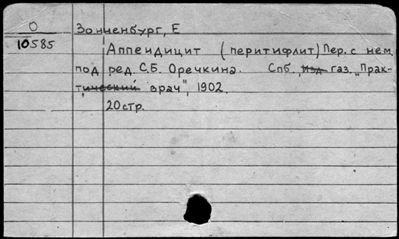 О
10585
Зонненбург, Е
Аппендицит (перитифлит) Пер. с нем.
под ред. С.Б. Оречкина. Спб., изд. газ. "Прак-
тический врач", 1902.
20стр.